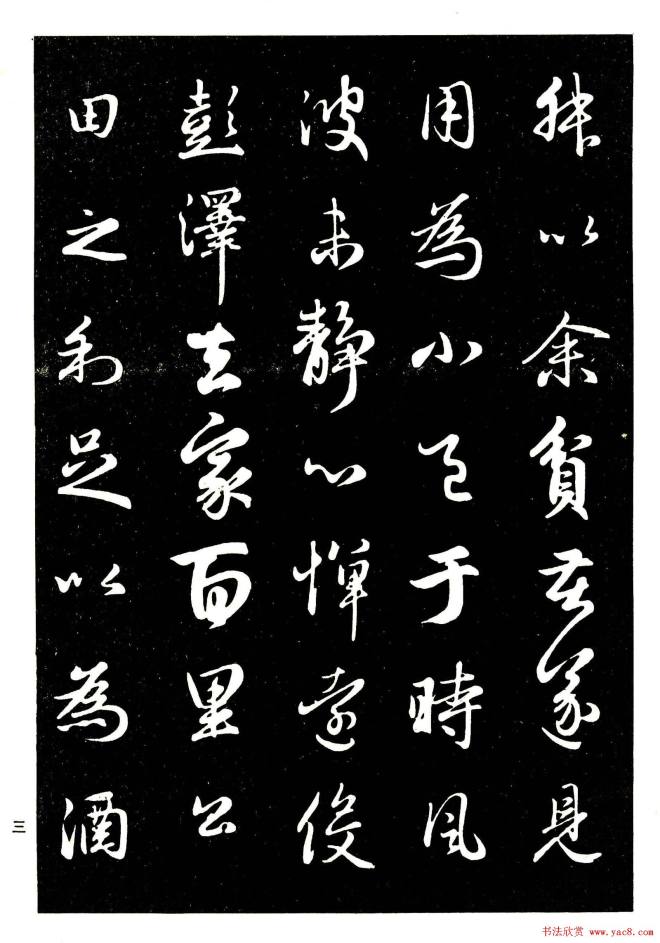 叔以余貧苦遂見
用為小邑于時風
波未靜心憚遠役
彭澤去家百里公
田之利足以為酒
三
书法欣赏 www.yac8.com